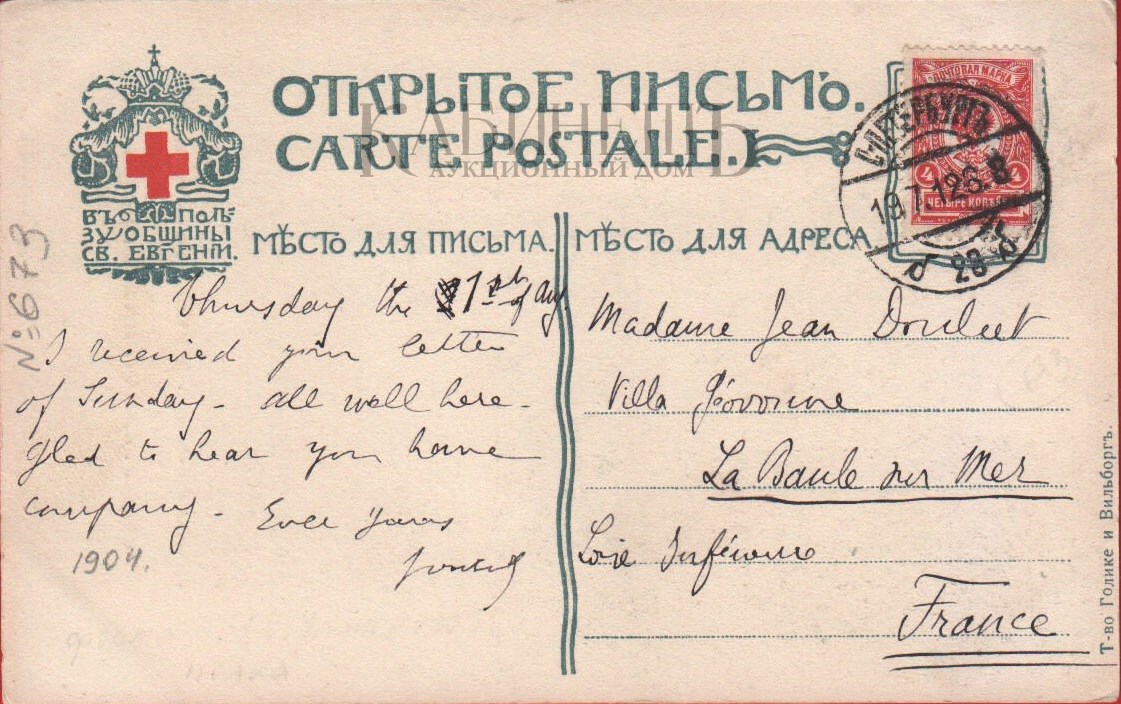 ОТКРЫТОЕ ПИСЬМО.
CARTE POSTALE.
КАБИНЕТЪ
АУКЦИОННЫЙ ДОМ
ВЪ ПОЛЬ-
ЗУ ОБЩИНЫ
СВ. ЕВГЕНІИ.
ПОЧТОВАЯ МАРКА
4 4
ЧЕТЫРЕ КОП.
19.7.12 6. 8
МѢСТО ДЛЯ ПИСЬМА.
МѢСТО ДЛЯ АДРЕСА
№ 673
Thursday the
I received your letter
of Sunday - all well here -
glad to hear you have
company - Ever yours
1904.
Madame Jean
Villa
La Baule sur Mer
Loire Inférieure
France
Т-во Голике и Вильборгъ.